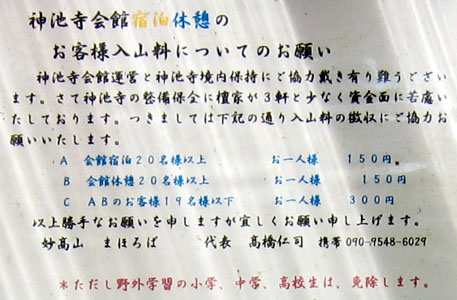 神池寺会館宿泊休憩の
お客様入山料についてのお願い
神池寺会館運営と神池寺境内保持にご協力戴き有り難うござい
ます。さて神池寺の整備保全に檀家が3軒と少なく資金面に苦慮い
たしております。つきましては下記の通り入山料の徴収にご協力お
願いいたします。
A 会館宿泊20名様以上 お一人様 150円。
B 会館休憩20名様以上 お一人様 150円
C ABのお客様19名様以下 お一人様 300円
以上勝手なお願いを申しますが宜しくお願い申し上げます。
妙高山 まほろば 代表 高橋仁司 携帯090-9548-6029
*ただし野外学習の小学、中学、高校生は、免除します。